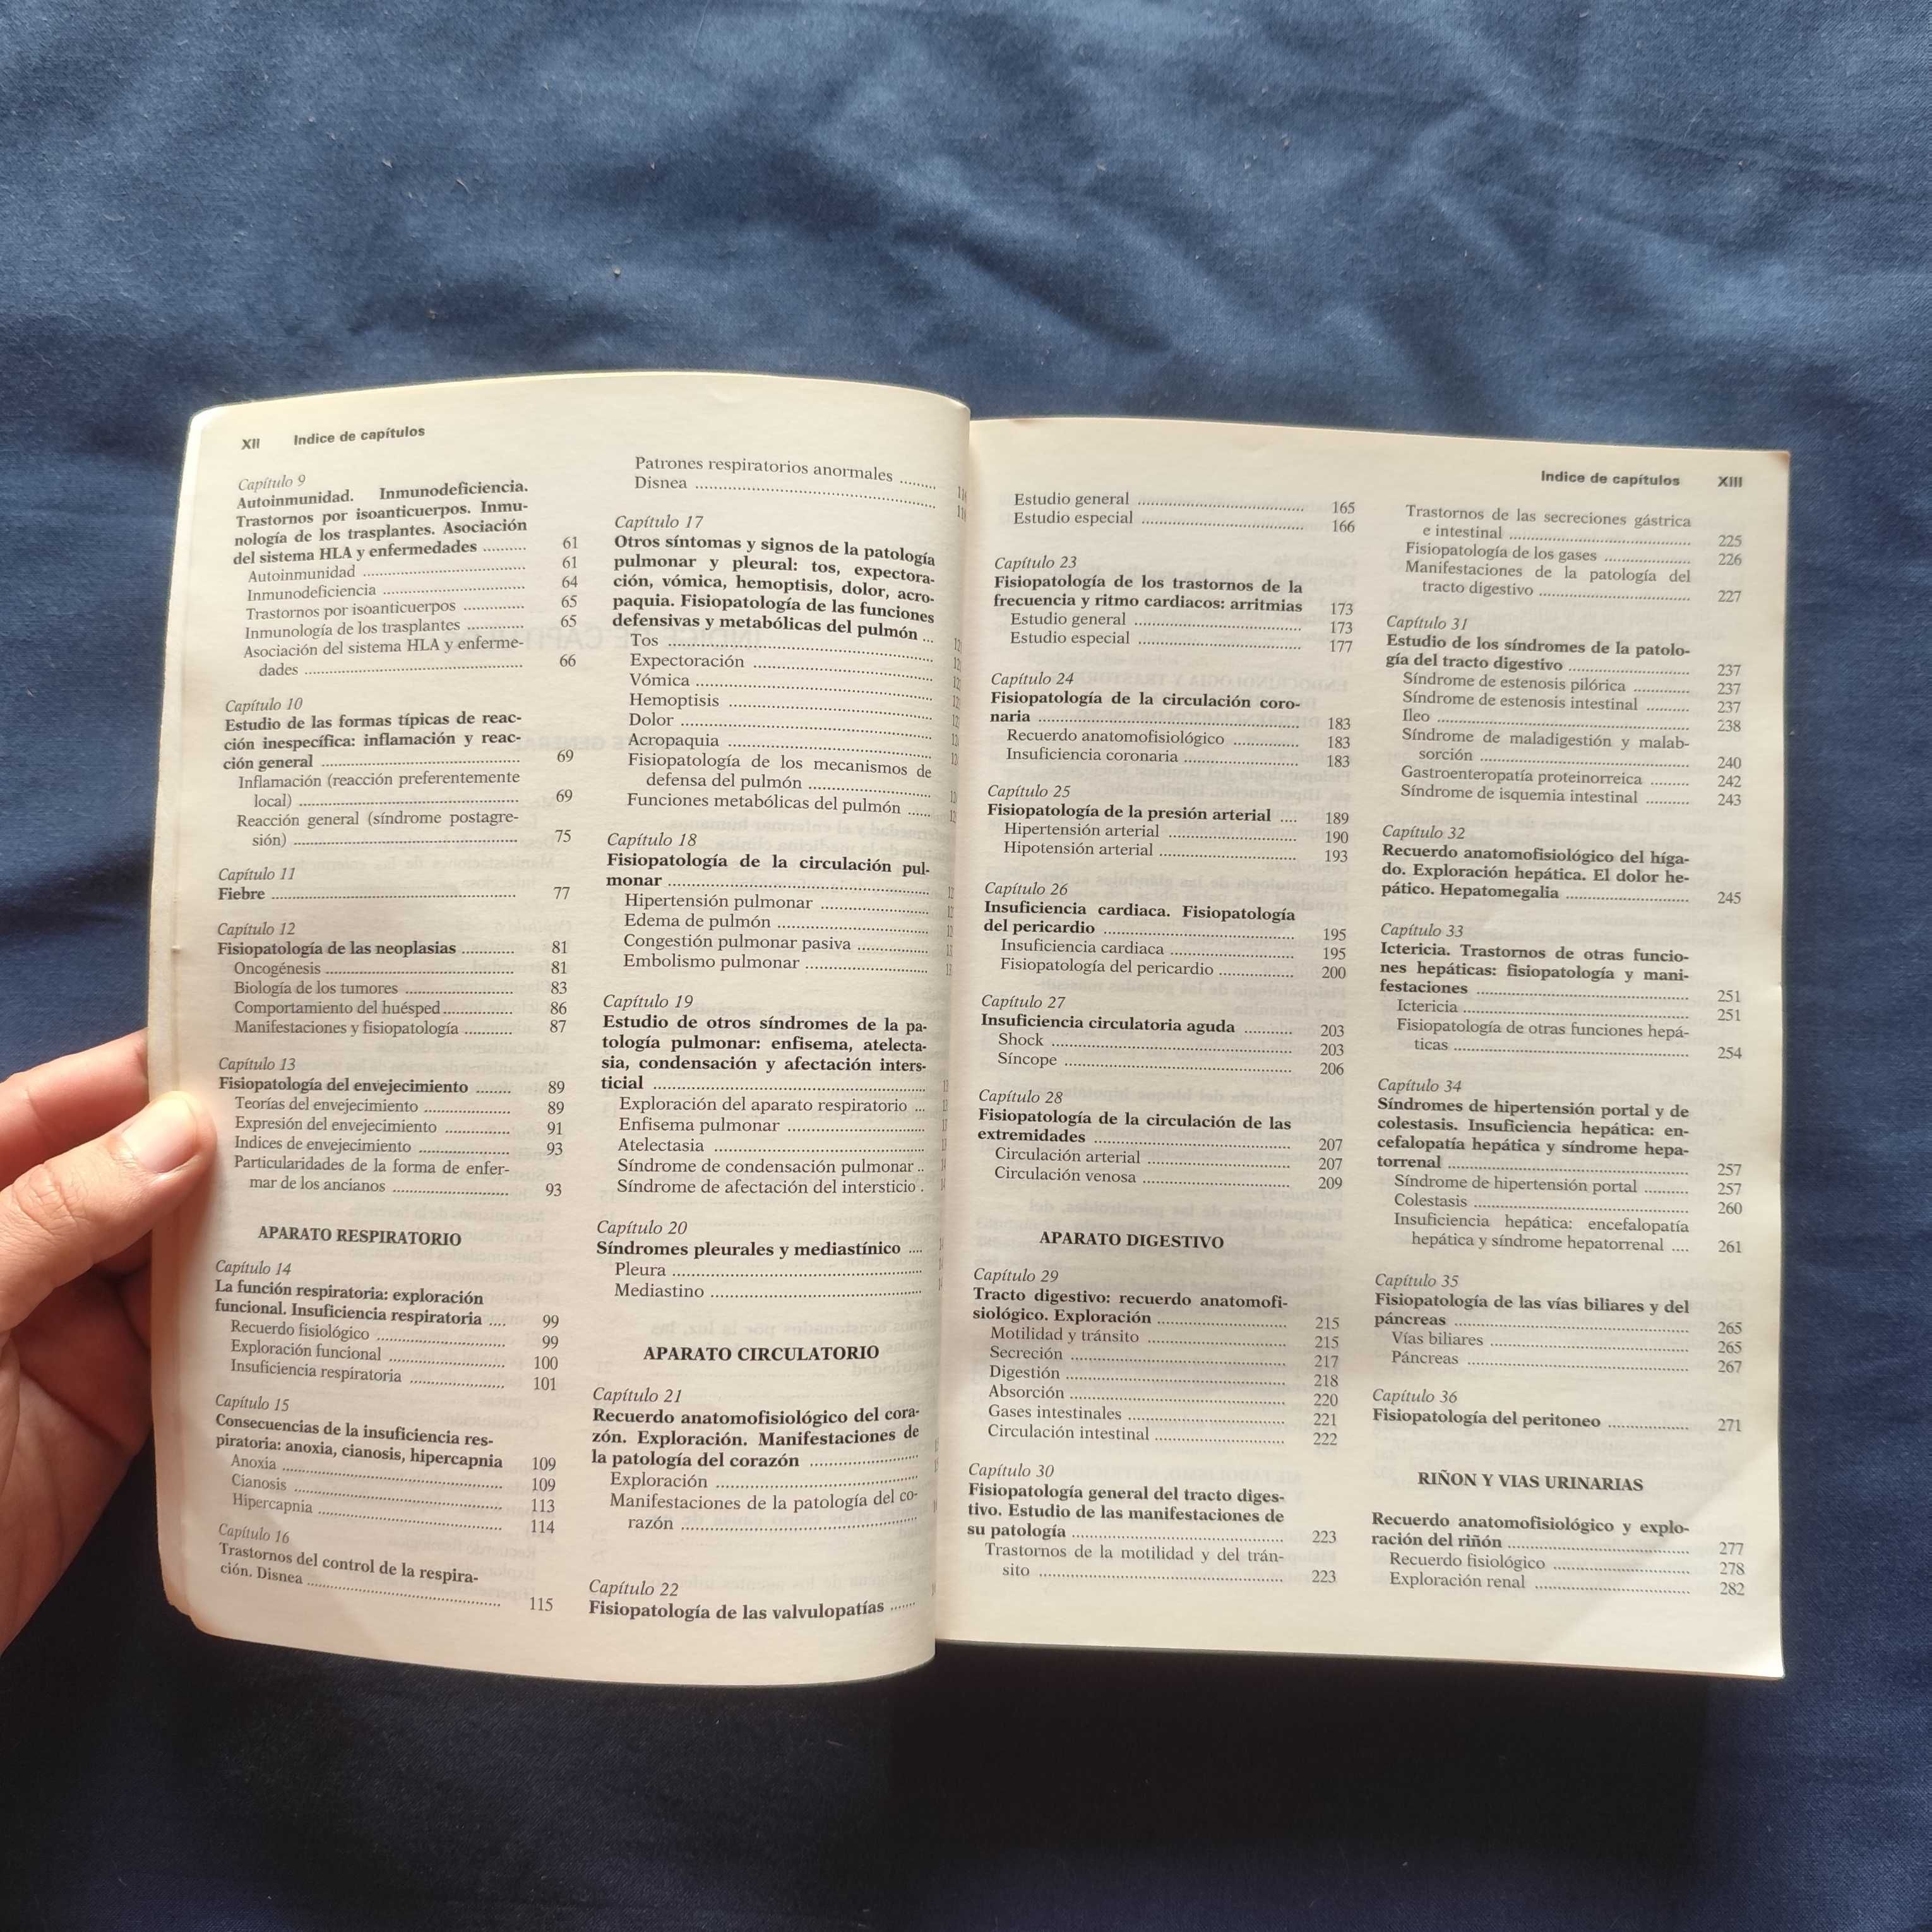 XII Indice de capítulos
Capítulo 9
Autoinmunidad. Inmunodeficiencia.
Trastornos por isoanticuerpos. Inmu-
nología de los trasplantes. Asociación
del sistema HLA y enfermedades .......... 61
Autoinmunidad .......... 61
Inmunodeficiencia .......... 64
Trastornos por isoanticuerpos .......... 65
Inmunología de los trasplantes .......... 65
Asociación del sistema HLA y enferme-
dades .......... 66
Capítulo 10
Estudio de las formas típicas de reac-
ción inespecífica: inflamación y reac-
ción general .......... 69
Inflamación (reacción preferentemente
local) .......... 69
Reacción general (síndrome postagre-
sión) .......... 75
Capítulo 11
Fiebre .......... 77
Capítulo 12
Fisiopatología de las neoplasias .......... 81
Oncogénesis .......... 81
Biología de los tumores .......... 83
Comportamiento del huésped .......... 86
Manifestaciones y fisiopatología .......... 87
Capítulo 13
Fisiopatología del envejecimiento .......... 89
Teorías del envejecimiento .......... 89
Expresión del envejecimiento .......... 91
Indices de envejecimiento .......... 93
Particularidades de la forma de enfer-
mar de los ancianos .......... 93
APARATO RESPIRATORIO
Capítulo 14
La función respiratoria: exploración
funcional. Insuficiencia respiratoria .... 99
Recuerdo fisiológico .......... 99
Exploración funcional .......... 100
Insuficiencia respiratoria .......... 101
Capítulo 15
Consecuencias de la insuficiencia res-
piratoria: anoxia, cianosis, hipercapnia 109
Anoxia .......... 109
Cianosis .......... 113
Hipercapnia .......... 114
Capítulo 16
Trastornos del control de la respira-
ción. Disnea .......... 115
Patrones respiratorios anormales ........
Disnea ..........
Capítulo 17
Otros síntomas y signos de la patología
pulmonar y pleural: tos, expectora-
ción, vómica, hemoptisis, dolor, acro-
paquia. Fisiopatología de las funciones
defensivas y metabólicas del pulmón ...
Tos ..........
Expectoración ..........
Vómica ..........
Hemoptisis ..........
Dolor ..........
Acropaquia ..........
Fisiopatología de los mecanismos de
defensa del pulmón ..........
Funciones metabólicas del pulmón ......
Capítulo 18
Fisiopatología de la circulación pul-
monar ..........
Hipertensión pulmonar ..........
Edema de pulmón ..........
Congestión pulmonar pasiva ..........
Embolismo pulmonar ..........
Capítulo 19
Estudio de otros síndromes de la pa-
tología pulmonar: enfisema, atelecta-
sia, condensación y afectación inters-
ticial ..........
Exploración del aparato respiratorio ...
Enfisema pulmonar ..........
Atelectasia ..........
Síndrome de condensación pulmonar ..
Síndrome de afectación del intersticio .
Capítulo 20
Síndromes pleurales y mediastínico ....
Pleura ..........
Mediastino ..........
APARATO CIRCULATORIO
Capítulo 21
Recuerdo anatomofisiológico del cora-
zón. Exploración. Manifestaciones de
la patología del corazón ..........
Exploración ..........
Manifestaciones de la patología del co-
razón ..........
Capítulo 22
Fisiopatología de las valvulopatías ......
Indice de capítulos XIII
Estudio general .......... 165
Estudio especial .......... 166
Capítulo 23
Fisiopatología de los trastornos de la
frecuencia y ritmo cardiacos: arritmias 173
Estudio general .......... 173
Estudio especial .......... 177
Capítulo 24
Fisiopatología de la circulación coro-
naria .......... 183
Recuerdo anatomofisiológico .......... 183
Insuficiencia coronaria .......... 183
Capítulo 25
Fisiopatología de la presión arterial .... 189
Hipertensión arterial .......... 190
Hipotensión arterial .......... 193
Capítulo 26
Insuficiencia cardiaca. Fisiopatología
del pericardio .......... 195
Insuficiencia cardiaca .......... 195
Fisiopatología del pericardio .......... 200
Capítulo 27
Insuficiencia circulatoria aguda .......... 203
Shock .......... 203
Síncope .......... 206
Capítulo 28
Fisiopatología de la circulación de las
extremidades .......... 207
Circulación arterial .......... 207
Circulación venosa .......... 209
APARATO DIGESTIVO
Capítulo 29
Tracto digestivo: recuerdo anatomofi-
siológico. Exploración .......... 215
Motilidad y tránsito .......... 215
Secreción .......... 217
Digestión .......... 218
Absorción .......... 220
Gases intestinales .......... 221
Circulación intestinal .......... 222
Capítulo 30
Fisiopatología general del tracto diges-
tivo. Estudio de las manifestaciones de
su patología .......... 223
Trastornos de la motilidad y del trán-
sito .......... 223
Trastornos de las secreciones gástrica
e intestinal .......... 225
Fisiopatología de los gases .......... 226
Manifestaciones de la patología del
tracto digestivo .......... 227
Capítulo 31
Estudio de los síndromes de la patolo-
gía del tracto digestivo .......... 237
Síndrome de estenosis pilórica .......... 237
Síndrome de estenosis intestinal .......... 237
Ileo .......... 238
Síndrome de maladigestión y malab-
sorción .......... 240
Gastroenteropatía proteinorreica ........ 242
Síndrome de isquemia intestinal .......... 243
Capítulo 32
Recuerdo anatomofisiológico del híga-
do. Exploración hepática. El dolor he-
pático. Hepatomegalia .......... 245
Capítulo 33
Ictericia. Trastornos de otras funcio-
nes hepáticas: fisiopatología y mani-
festaciones .......... 251
Ictericia .......... 251
Fisiopatología de otras funciones hepá-
ticas .......... 254
Capítulo 34
Síndromes de hipertensión portal y de
colestasis. Insuficiencia hepática: en-
cefalopatía hepática y síndrome hepa-
torrenal .......... 257
Síndrome de hipertensión portal .......... 257
Colestasis .......... 260
Insuficiencia hepática: encefalopatía
hepática y síndrome hepatorrenal .... 261
Capítulo 35
Fisiopatología de las vías biliares y del
páncreas .......... 265
Vías biliares .......... 265
Páncreas .......... 267
Capítulo 36
Fisiopatología del peritoneo .......... 271
RIÑON Y VIAS URINARIAS
Recuerdo anatomofisiológico y explo-
ración del riñón .......... 277
Recuerdo fisiológico .......... 278
Exploración renal .......... 282